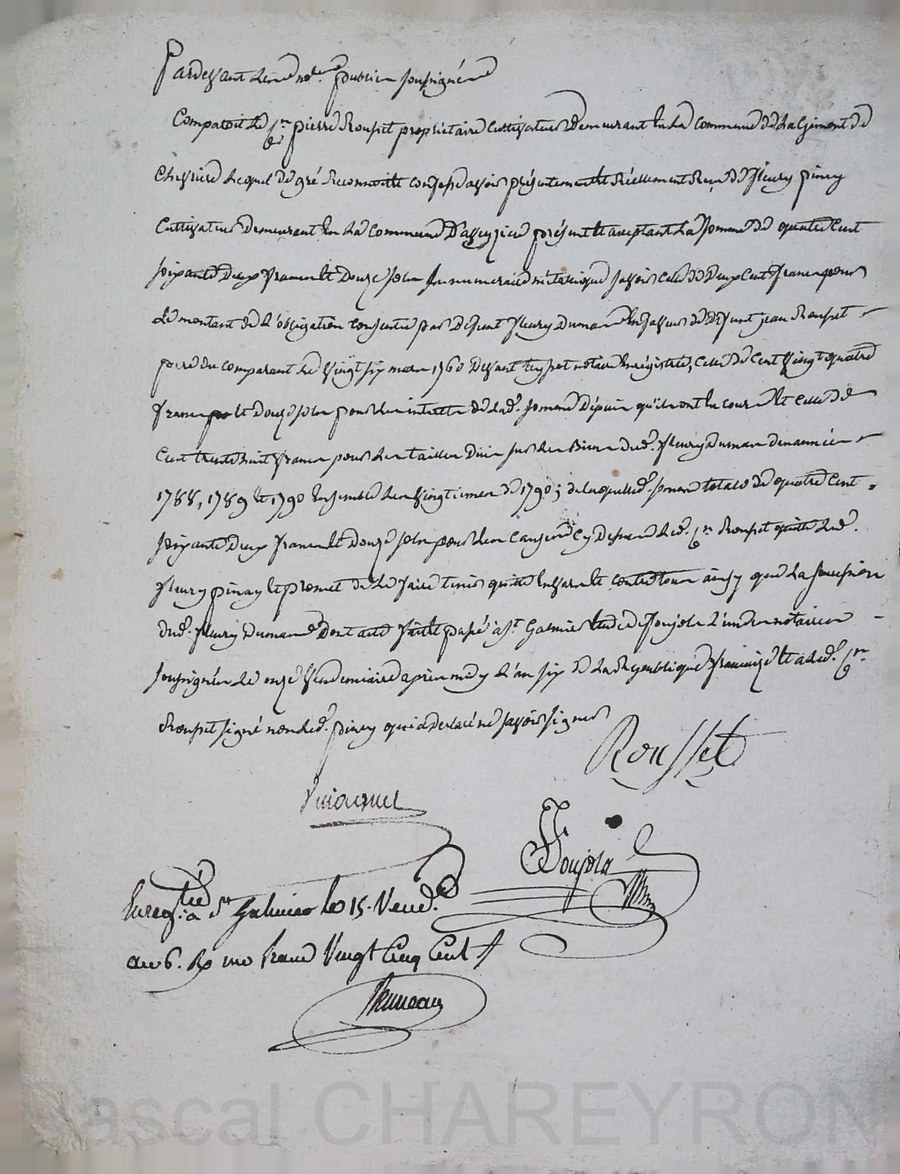 Pardevant les not.res publics soussignés
Comparoit le C.en pierre Rousset propriétaire Cultivateur Demeurant en La Commune de La Gimont de
Chevrieres Lequel de gré Reconnoit et confesse avoir présentement et Réellement Reçu de fleury pinay
Cultivateur Demeurant en La Commune D'aveyzieu présent et acceptant La Somme de quatre Cent
soixante Deux francs et Douze sols en numeraire métalique savoir Celle de Deux Cent francs pour
Le montant de L'obligation consentie par Défunt fleury Dumas en faveur de Défunt jean Rousset
pere du comparant Le Vingt six mars 1760 devant notaire Enrégistrée, Celle de Cent Vingt quatre
francs et Douze sols pour les interets de Lad. somme Depuis qu'ils ont Eu cours et Celle de
Cent trente huit francs pour les tailles Dües sur les Biens dud. fleury Dumas des années
1788, 1789 et 1790 Ensemble les Vingtiemes de 1790; de laquelle d. somme totale de quatre Cent
soixante Deux francs et Douze sols pour les Causes Cy Dessus Led. C.en Rousset quitte Led.
fleury pinay et promet de Le faire tenir quitte Envers et contre tous ainsy que La succession
dud. fleury Dumas Dont acte fait et passé à St. Galmier Etude de Soujols L'un des notaires
soussignés Le onze Vendemiaire après midy L'an six de La Republique française et a Led. C.en
Rousset signé non Led. pinay qui a declaré ne savoir signer
Rousset
Soujols
Enreg.tré à St Galmier le 15. Vend.re
an 6. Rx un franc Vingt Cinq Cent.
Bruneau
Pascal CHAREYRON